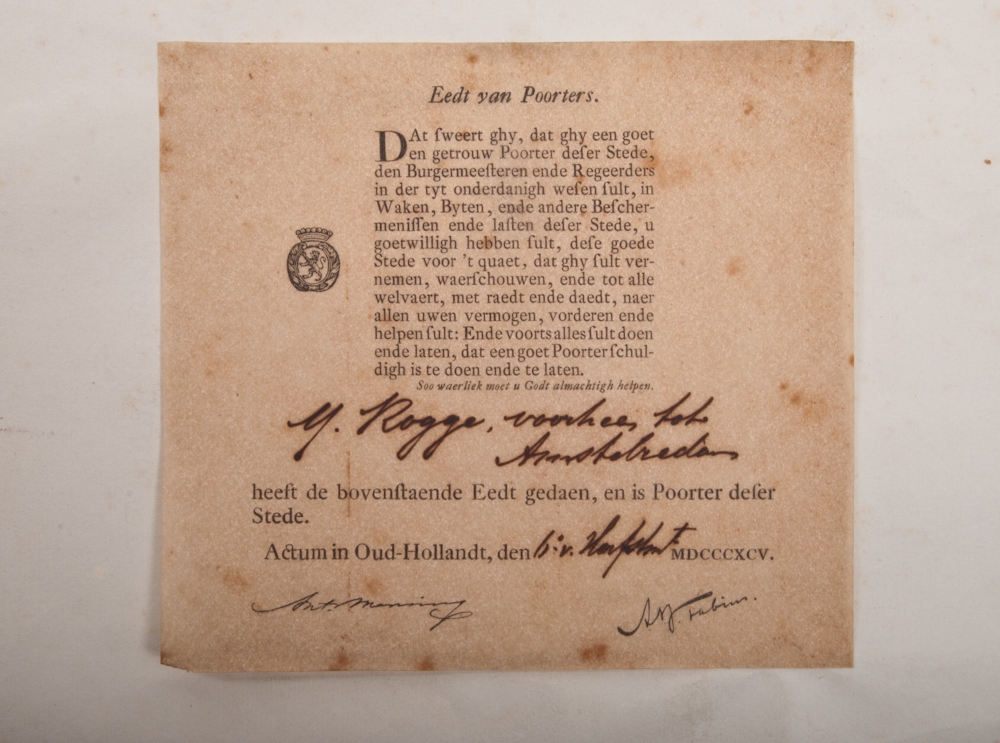 Eedt van Poorters.
DAt ſweert ghy, dat ghy een goet
en getrouw Poorter deſer Stede,
den Burgermeeſteren ende Regeerders
in der tyt onderdanigh weſen ſult, in
Waken, Byten, ende andere Beſcher-
meniſſen ende laſten deſer Stede, u
goetwilligh hebben ſult, deſe goede
Stede voor 't quaet, dat ghy ſult ver-
nemen, waerſchouwen, ende tot alle
welvaert, met raedt ende daedt, naer
allen uwen vermogen, vorderen ende
helpen ſult: Ende voorts alles ſult doen
ende laten, dat een goet Poorter ſchul-
digh is te doen ende te laten.
Soo waerliek moet u Godt almachtigh helpen.
Rogge, tot
heeft de bovenſtaende Eedt gedaen, en is Poorter deſer
Stede.
Actum in Oud-Hollandt, den MDCCCXCV.